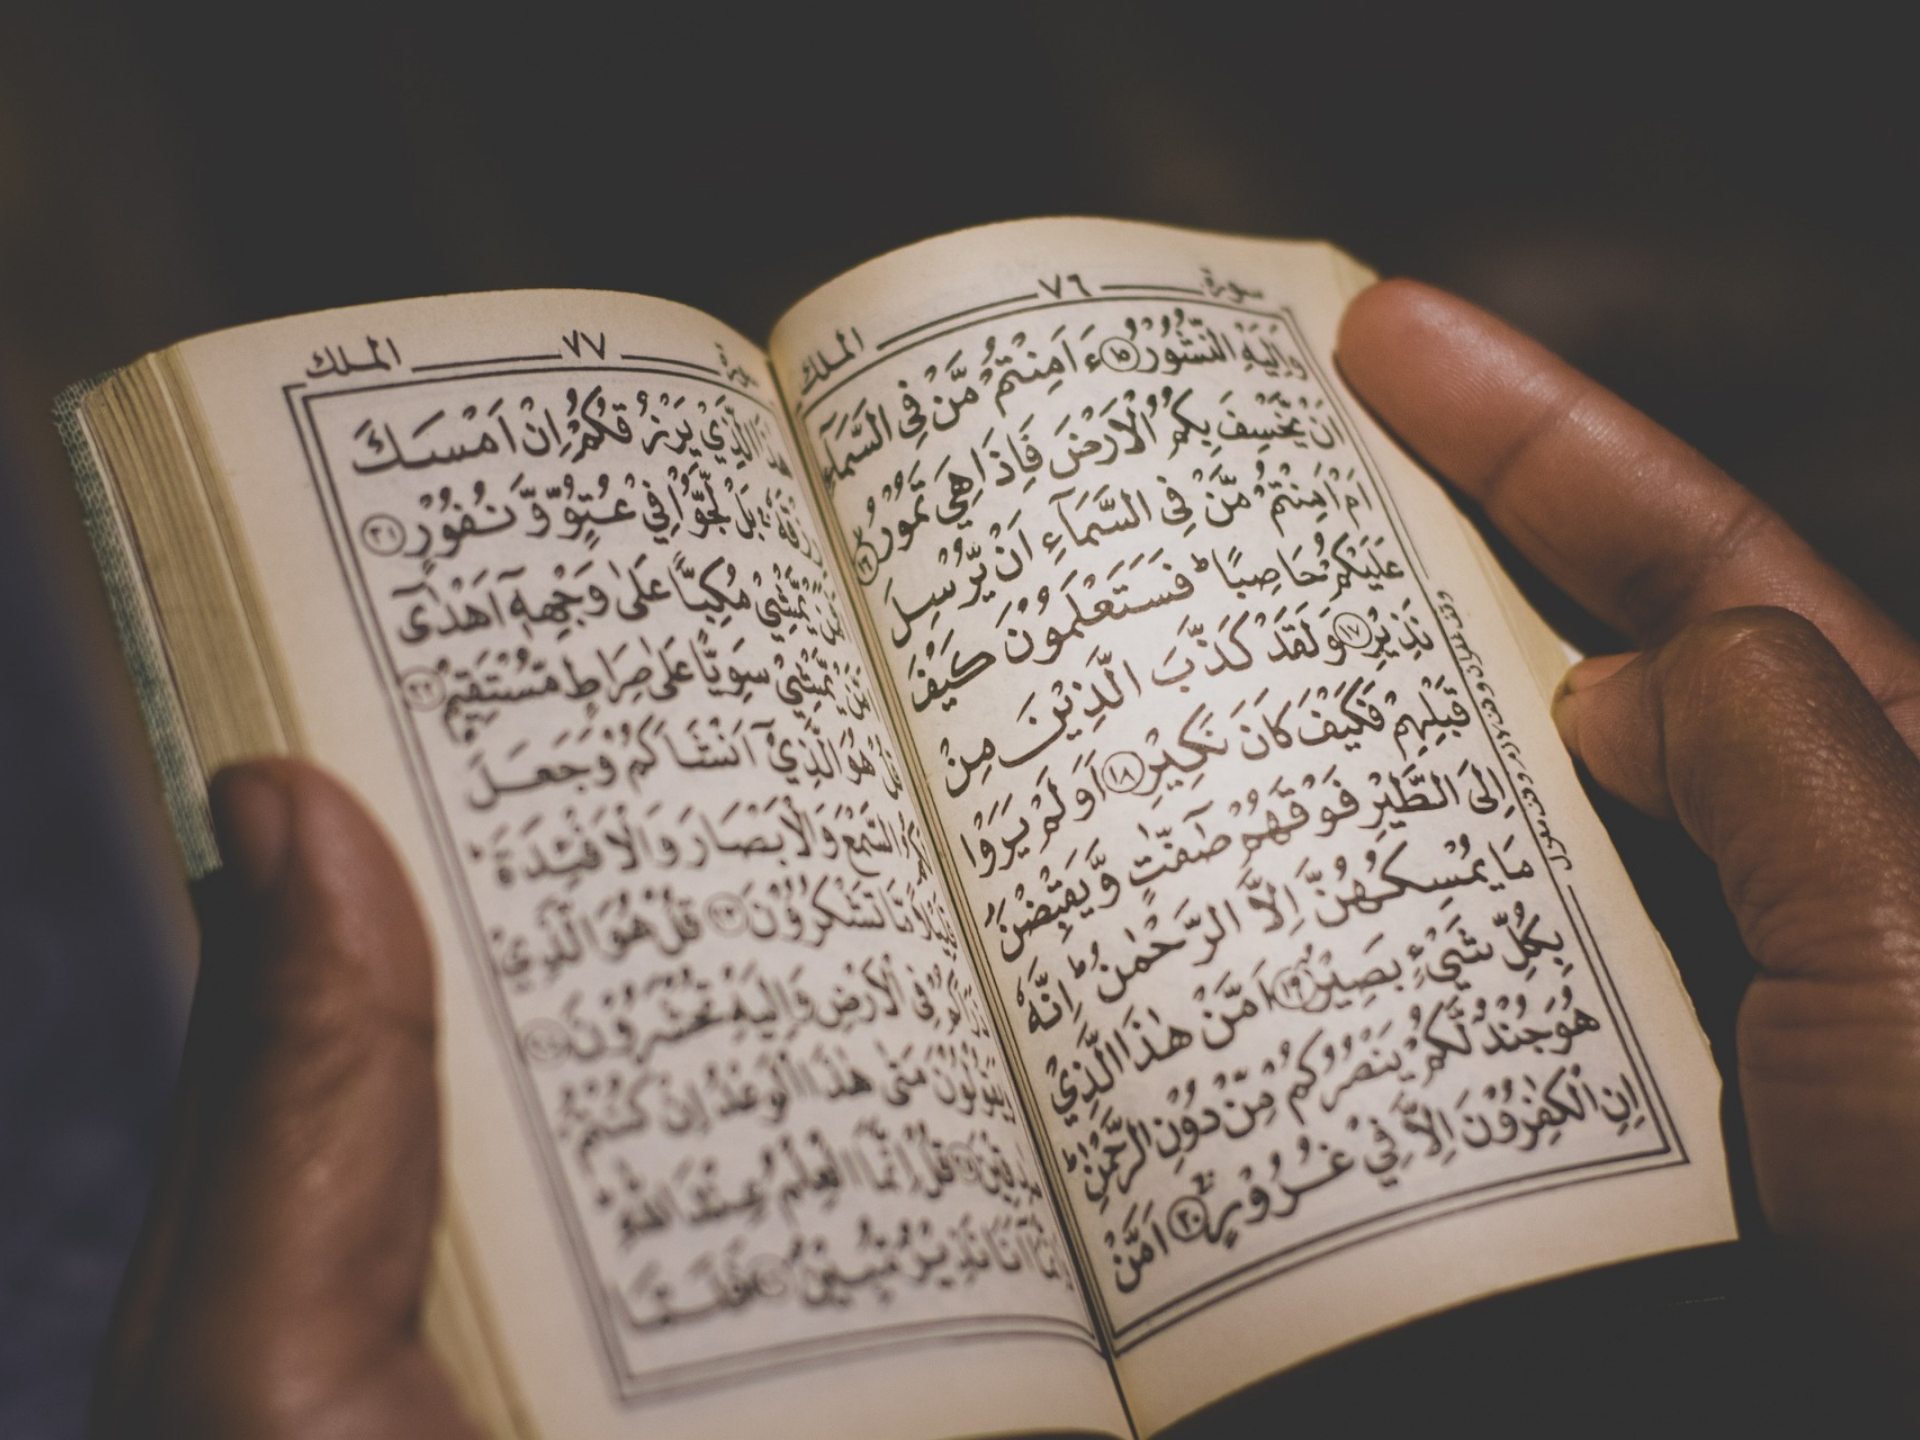 سورة ٧٦ الملك
وَاِلَيْهِ النُّشُوْرُ ﴿١٥﴾ ءَاَمِنْتُمْ مَّنْ فِي السَّمَآءِ
اَنْ يَّخْسِفَ بِكُمُ الْاَرْضَ فَاِذَا هِيَ تَمُوْرُ ﴿١٦﴾
اَمْ اَمِنْتُمْ مَّنْ فِي السَّمَآءِ اَنْ يُّرْسِلَ
عَلَيْكُمْ حَاصِبًا ط فَسَتَعْلَمُوْنَ كَيْفَ
نَذِيْرِ ﴿١٧﴾ وَلَقَدْ كَذَّبَ الَّذِيْنَ مِنْ
قَبْلِهِمْ فَكَيْفَ كَانَ نَكِيْرِ ﴿١٨﴾ اَوَلَمْ يَرَوْا
اِلَى الطَّيْرِ فَوْقَهُمْ صٰٓفّٰتٍ وَّيَقْبِضْنَ
مَا يُمْسِكُهُنَّ اِلَّا الرَّحْمٰنُ ط اِنَّهٗ
بِكُلِّ شَيْءٍ بَصِيْرٌ ﴿١٩﴾ اَمَّنْ هٰذَا الَّذِيْ
هُوَ جُنْدٌ لَّكُمْ يَنْصُرُكُمْ مِّنْ دُوْنِ الرَّحْمٰنِ ط
اِنِ الْكٰفِرُوْنَ اِلَّا فِيْ غُرُوْرٍ ﴿٢٠﴾ اَمَّنْ
سورة ٧٧ الملك
هٰذَا الَّذِيْ يَرْزُقُكُمْ اِنْ اَمْسَكَ
رِزْقَهٗ بَلْ لَّجُّوْا فِيْ عُتُوٍّ وَّنُفُوْرٍ ﴿٢١﴾
يَّمْشِيْ مُكِبًّا عَلٰى وَجْهِهٖٓ اَهْدٰٓى
يَّمْشِيْ سَوِيًّا عَلٰى صِرَاطٍ مُّسْتَقِيْمٍ ﴿٢٢﴾
قُلْ هُوَ الَّذِيْٓ اَنْشَاَكُمْ وَجَعَلَ
لَكُمُ السَّمْعَ وَالْاَبْصَارَ وَالْاَفْئِدَةَ ط
قَلِيْلًا مَّا تَشْكُرُوْنَ ﴿٢٣﴾ قُلْ هُوَ الَّذِيْ
ذَرَاَكُمْ فِي الْاَرْضِ وَاِلَيْهِ تُحْشَرُوْنَ ﴿٢٤﴾
وَيَقُوْلُوْنَ مَتٰى هٰذَا الْوَعْدُ اِنْ كُنْتُمْ
صٰدِقِيْنَ ﴿٢٥﴾ قُلْ اِنَّمَا الْعِلْمُ عِنْدَ اللّٰهِ
وَاِنَّمَآ اَنَا نَذِيْرٌ مُّبِيْنٌ ﴿٢٦﴾ فَلَمَّا